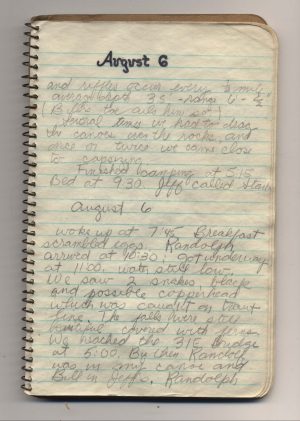 August 6
and riffles occur every
average depth 3.5 - range 6 -
Several times we had to drag
the canoe over the rocks and
once or twice we came close
to capsizing.
Finished camping at 5:15.
Bed at 9:30. Jeff called
August 6
woke up at 7:45. Breakfast
scrambled eggs. Randolph
arrived at 10:30; got underway
at 11:00. water still low.
We saw 2 snakes, black
and possible copperhead
which was caught on trout
line. The falls were
beautiful covered with
We reached the 31E Bridge
at 5:00. By then Randolf
was in my canoe and
Bill in Jeff's. Randolph